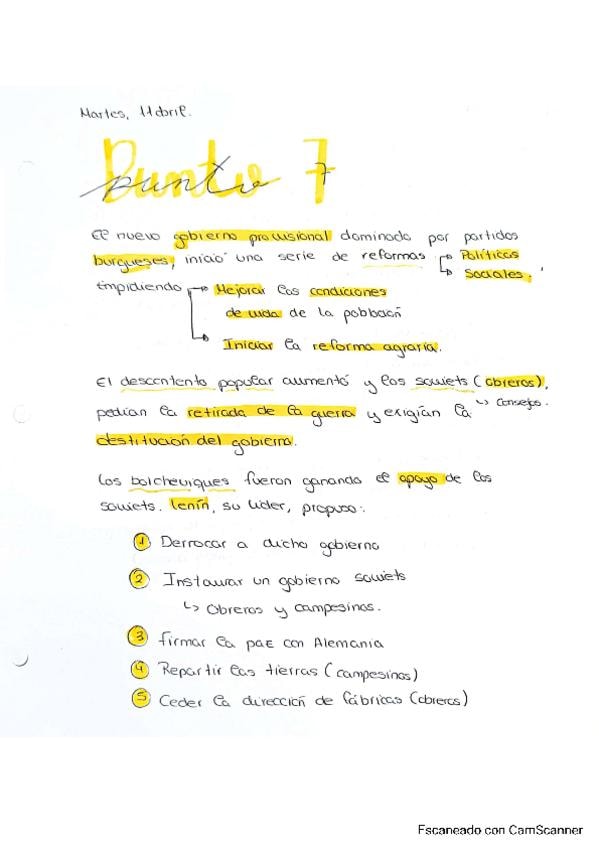 Martes, 11 abril.
Punto 7
punto 7
El nuevo gobierno provisional dominado por partidos
burgueses, inició una serie de reformas → Políticas
→ Sociales.
Impidiendo → Mejorar las condiciones
de vida de la población
→ Iniciar la reforma agraria.
El descontento popular aumentó y los soviets (obreros),
↳ Consejos.
pedían la retirada de la guerra y exigían la
destitución del gobierno.
Los bolcheviques fueron ganando el apoyo de los
soviets. Lenín, su líder, propuso:
① Derrocar a dicho gobierno
② Instaurar un gobierno soviets
↳ Obreros y campesinos.
③ firmar la paz con Alemania
④ Repartir las tierras (campesinos)
⑤ Ceder la dirección de fábricas (obreros)
Escaneado con CamScanner